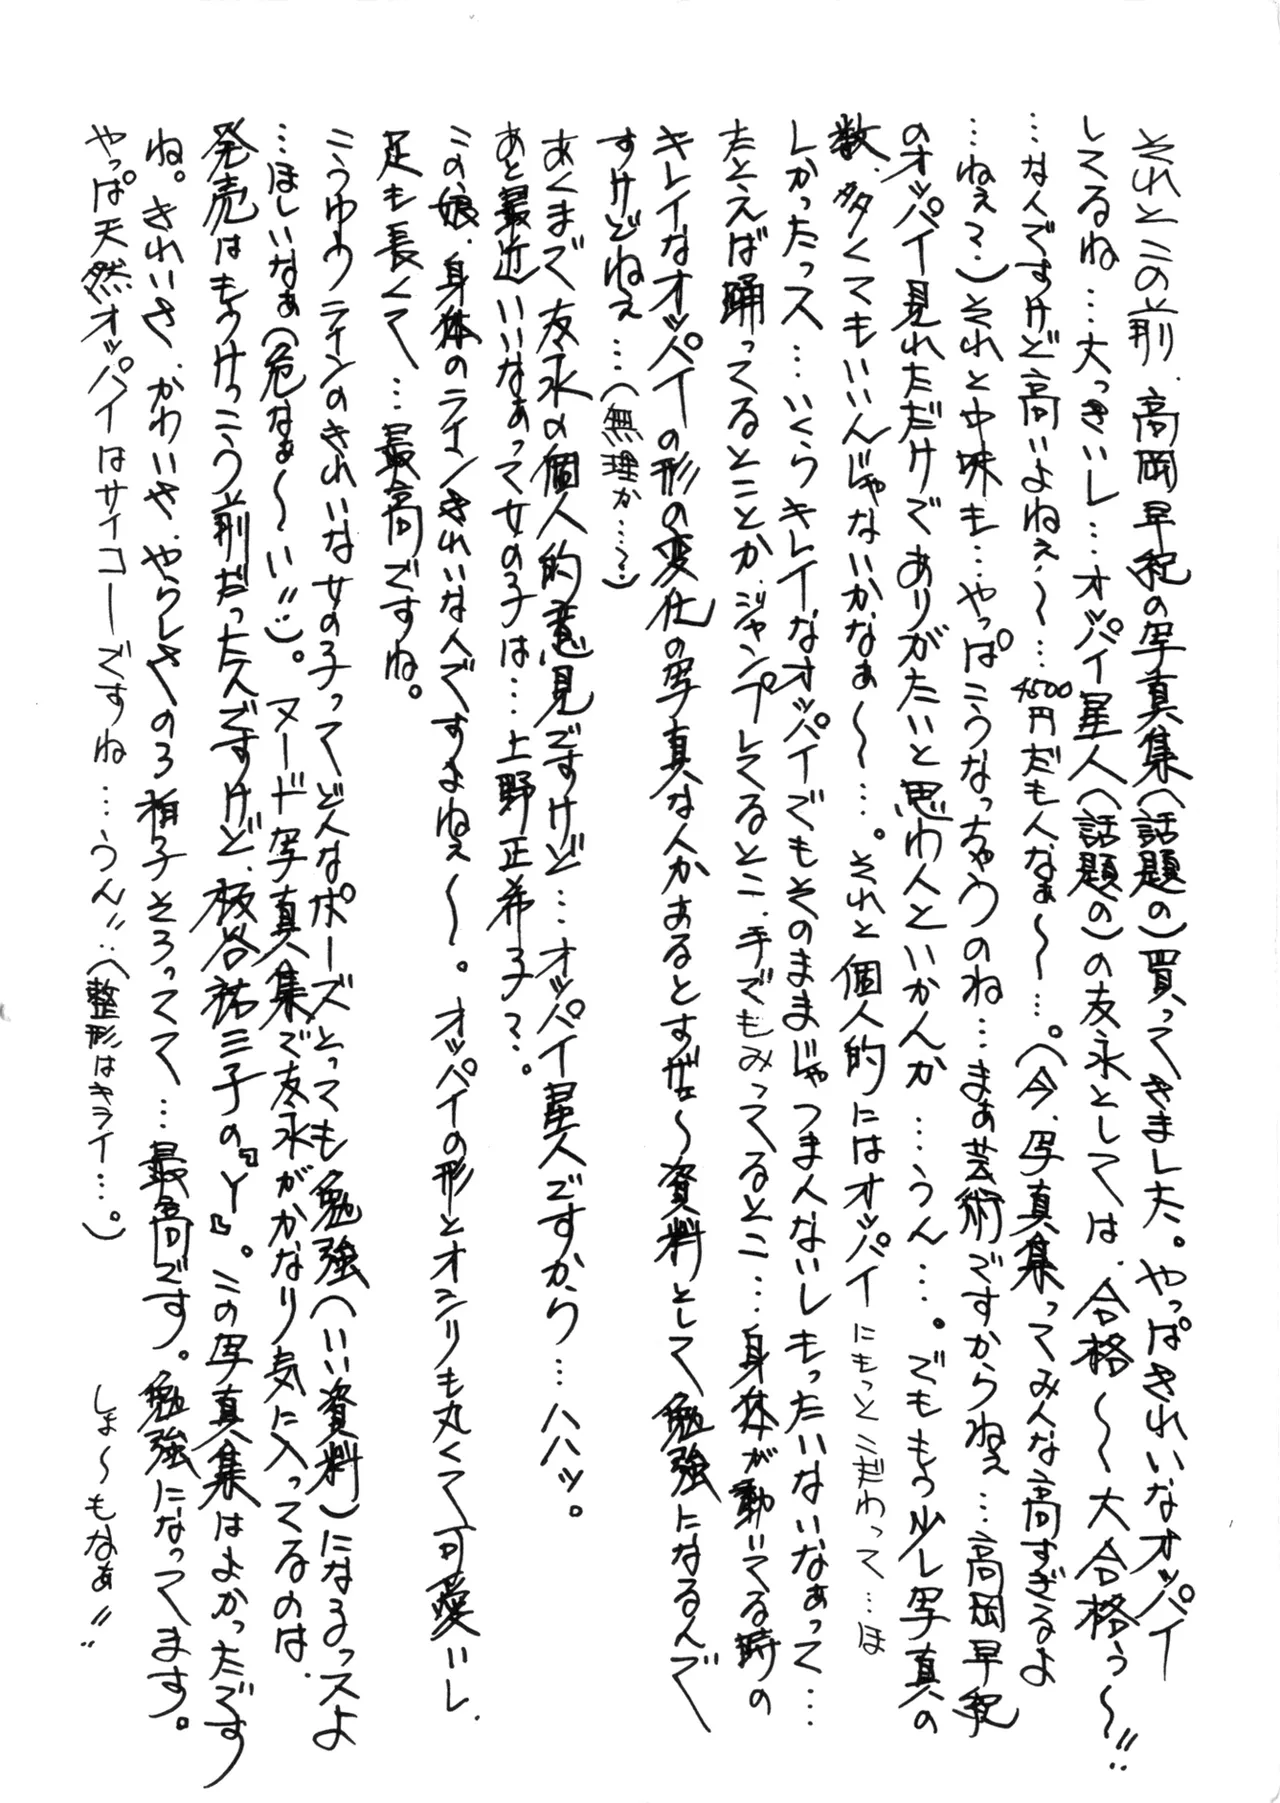 それとこの前、高岡早紀の写真集(話題の)買ってきました。やっぱきれいなオッパイ
してるね…大っきいし…オッパイ星人(話題の)の友永としては、合格～大合格う～!!
…なんですけど高いよねぇ～…4500円だもんなぁ～…。(今、写真集ってみんな高すぎるよ
…ねぇ?)それと中味も…やっぱこうなっちゃうのね…まぁ芸術ですからねぇ…高岡早紀
のオッパイ見れただけでありがたいと思わんといかんか…うん…。でももう少し写真の
数、多くてもいいんじゃないかなぁ～…。それと個人的にはオッパイにもっとこだわって…ほ
しかったっス…いくらキレイなオッパイでもそのままじゃつまんないしもったいないなぁって…
たとえば踊ってるとことか、ジャンプしてるとこ、手でもみってるとこ…身体が動いてる時の
キレイなオッパイの形の変化の写真なんかあるとすげェ～資料として勉強になるんで
すけどねぇ…(無理か…?)
あくまで友永の個人的意見ですけど…オッパイ星人ですから…ハハッ。
あと最近いいなぁって女の子は…上野正希子?。
この娘、身体のラインきれいな人ですよねぇ～。オッパイの形とオシリも丸くて可愛いし、
足も長くて…最高ですね。
こうゆうラインのきれいな女の子ってどんなポーズとっても勉強(いい資料)になるっスよ
…ほしいなぁ(危なぁ～い!!)。ヌード写真集で友永がかなり気に入ってるのは、
発売はもうけっこう前だったんですけど、板谷祐三子の『Y』。この写真集はよかったです
ね。きれいさ、かわいさ、やらしさの3拍子そろってて…最高です。勉強になってます。
やっぱ天然オッパイはサイコーですね…うん!!…(整形はキライ…。)しょ～もなぁ!!